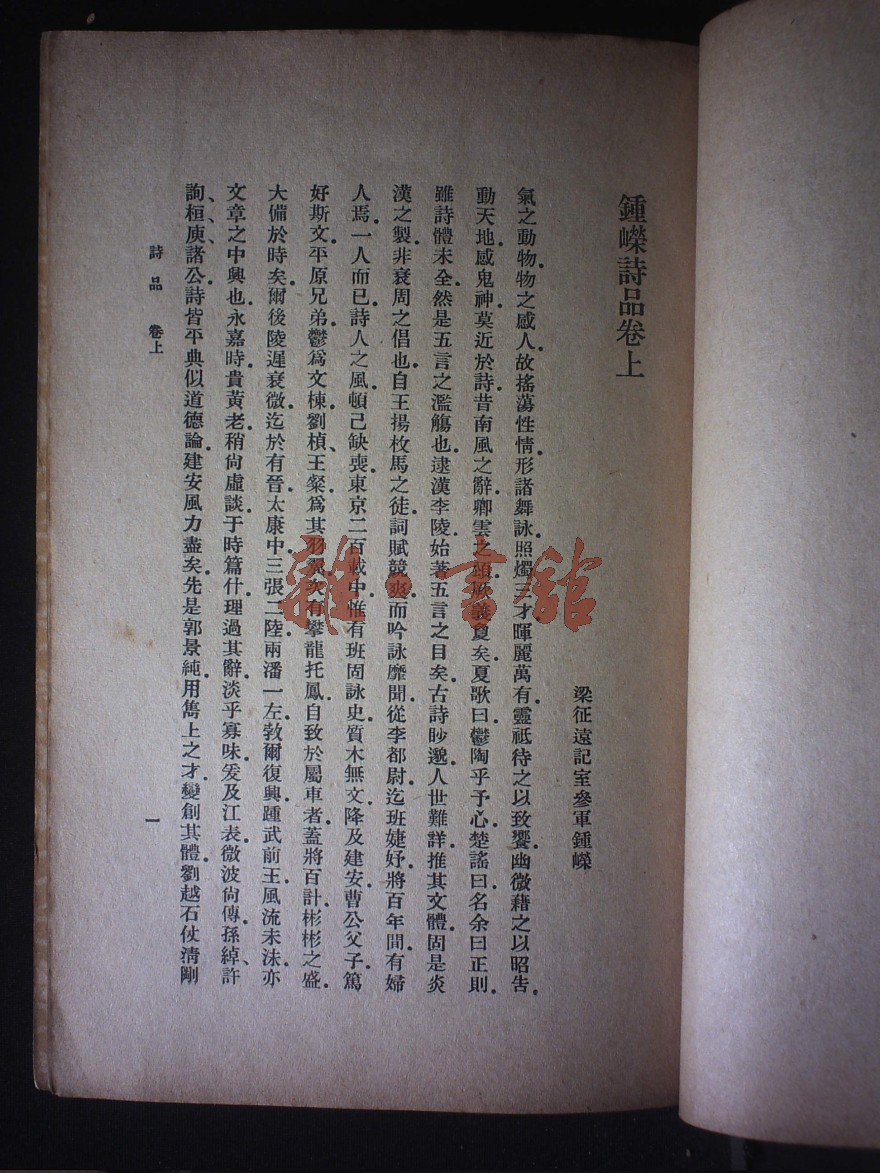 鍾嶸詩品卷上
梁征遠記室參軍鍾嶸
氣之動物。物之感人。故搖蕩性情。形諸舞詠。照燭三才。暉麗萬有。靈祇待之以致饗。幽微藉之以昭告。
動天地。感鬼神。莫近於詩。昔南風之辭。卿雲之頌。厥義夐矣。夏歌曰。鬱陶乎予心。楚謠曰。名余曰正則。
雖詩體未全。然是五言之濫觴也。逮漢李陵。始著五言之目矣。古詩眇邈。人世難詳。推其文體。固是炎
漢之製。非衰周之倡也。自王揚枚馬之徒。詞賦競爽。而吟詠靡聞。從李都尉。迄班婕妤。將百年間。有婦
人焉。一人而已。詩人之風。頓已缺喪。東京二百載中。惟有班固詠史。質木無文。降及建安。曹公父子。篤
好斯文。平原兄弟。鬱爲文棟。劉楨、王粲。爲其羽翼。次有攀龍托鳳。自致於屬車者。蓋將百計。彬彬之盛。
大備於時矣。爾後陵遲衰微。迄於有晉。太康中。三張二陸。兩潘一左。敦爾復興。踵武前王。風流未沬。亦
文章之中興也。永嘉時。貴黃老。稍尙虛談。于時篇什。理過其辭。淡乎寡味。爰及江表。微波尙傳。孫綽、許
詢、桓、庾諸公。詩皆平典似道德論。建安風力盡矣。先是郭景純。用雋上之才。變創其體。劉越石仗淸剛
詩品 卷上
一
雜·書館